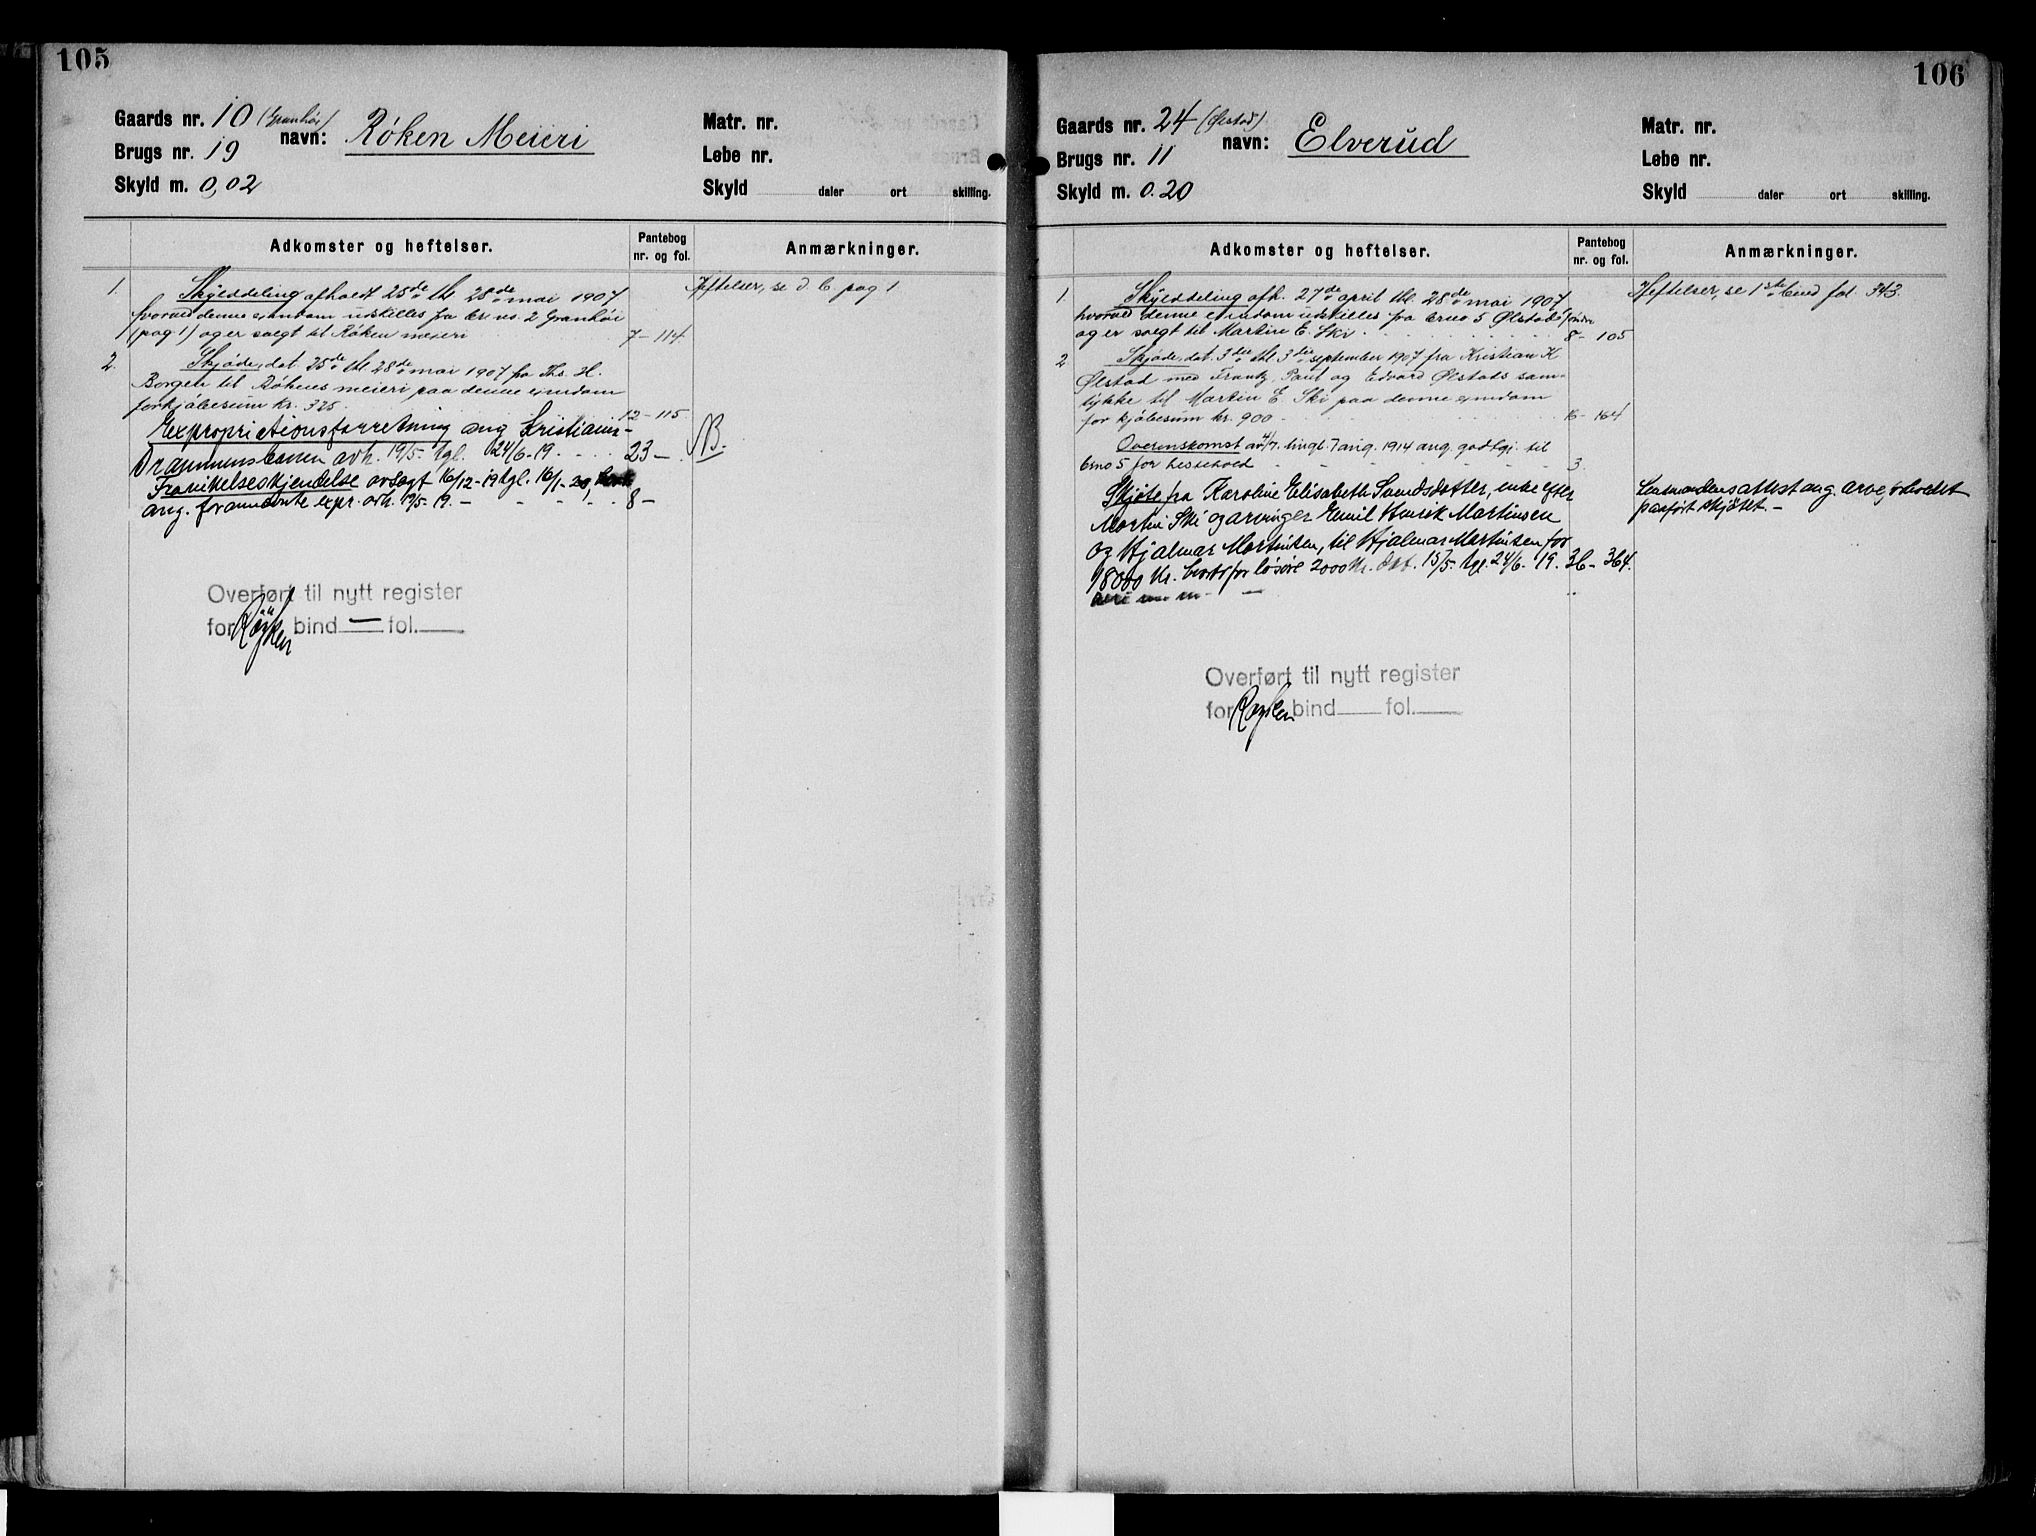 105
Gaards nr. 10 (Granhöi)
navn: Røken Meieri
Brugs nr. 19
Skyld m. 0,02
Matr. nr.
Løbe nr.
Skyld daler ort skilling.
Adkomster og heftelser. Pantebog nr. og fol. Anmærkninger.
1. Skylddeling afholdt 25de tl. 28de mai 1907 Heftelser, se d. b pag 1.
hvorved denne eiendom udskilles fra br. no. 2 Granhöi
(pag 1) og er solgt til Røken meieri 7 - 114
2. Skjøde, dat 25de tl. 28de mai 1907 fra Ths. H.
Borgen til Røkens meieri paa denne eiendom
for kjøbesum kr. 325. 12 - 115
Expropriationsforretning ang Kristiania-
Drammensbanen avh. 19/5- tgl. 24/6-19. 23 - NB.
Fravikelseskjendelse avsagt 16/12-19 tgl. 16/1-20,
ang. forannevnte expr. avh. 19/5-19. - 8 -
Overført til nytt register
for Røyken bind — fol.
106
Gaards nr. 24 (Ølstad)
navn: Elverud
Brugs nr. 11
Skyld m. 0.20
Matr. nr.
Løbe nr.
Skyld daler ort skilling.
Adkomster og heftelser. Pantebog nr. og fol. Anmærkninger.
1. Skylddeling afh. 27de april tl. 28de mai 1907 Heftelser, se 1ste bind fol. 343.
hvorved denne eiendom udskilles fra brno 5 Ølstad søndre
og er solgt til Martin E. Ski. 8 - 105
2 Skjøde, dat. 3die tl. 3die september 1907 fra Kristian K
Ølstad med Frantz, Paul og Edvard Ølstads sam-
tykke til Martin E. Ski paa denne eiendom
for kjøbesum kr. 900 16 - 164
Overenskomst av 4/7. tingl. 7 aug. 1914 ang. godtgj. til
brno 5 for hestehold 3.
Skjøte fra Karoline Elisabeth Svendsdatter, enke efter Lensmandens attest ang. arveforholdet
Martin Ski og arvinger Emil Henrik Martinsen paaført skjøtet. -
og Hjalmar Martinsen, til Hjalmar Martinsen for
18000 kr. hvorav for løsøre 2000 kr. dat. 15/5- tgl. 24/6-19. 36 - 364.
Overført til nytt register
for Røyken bind fol.